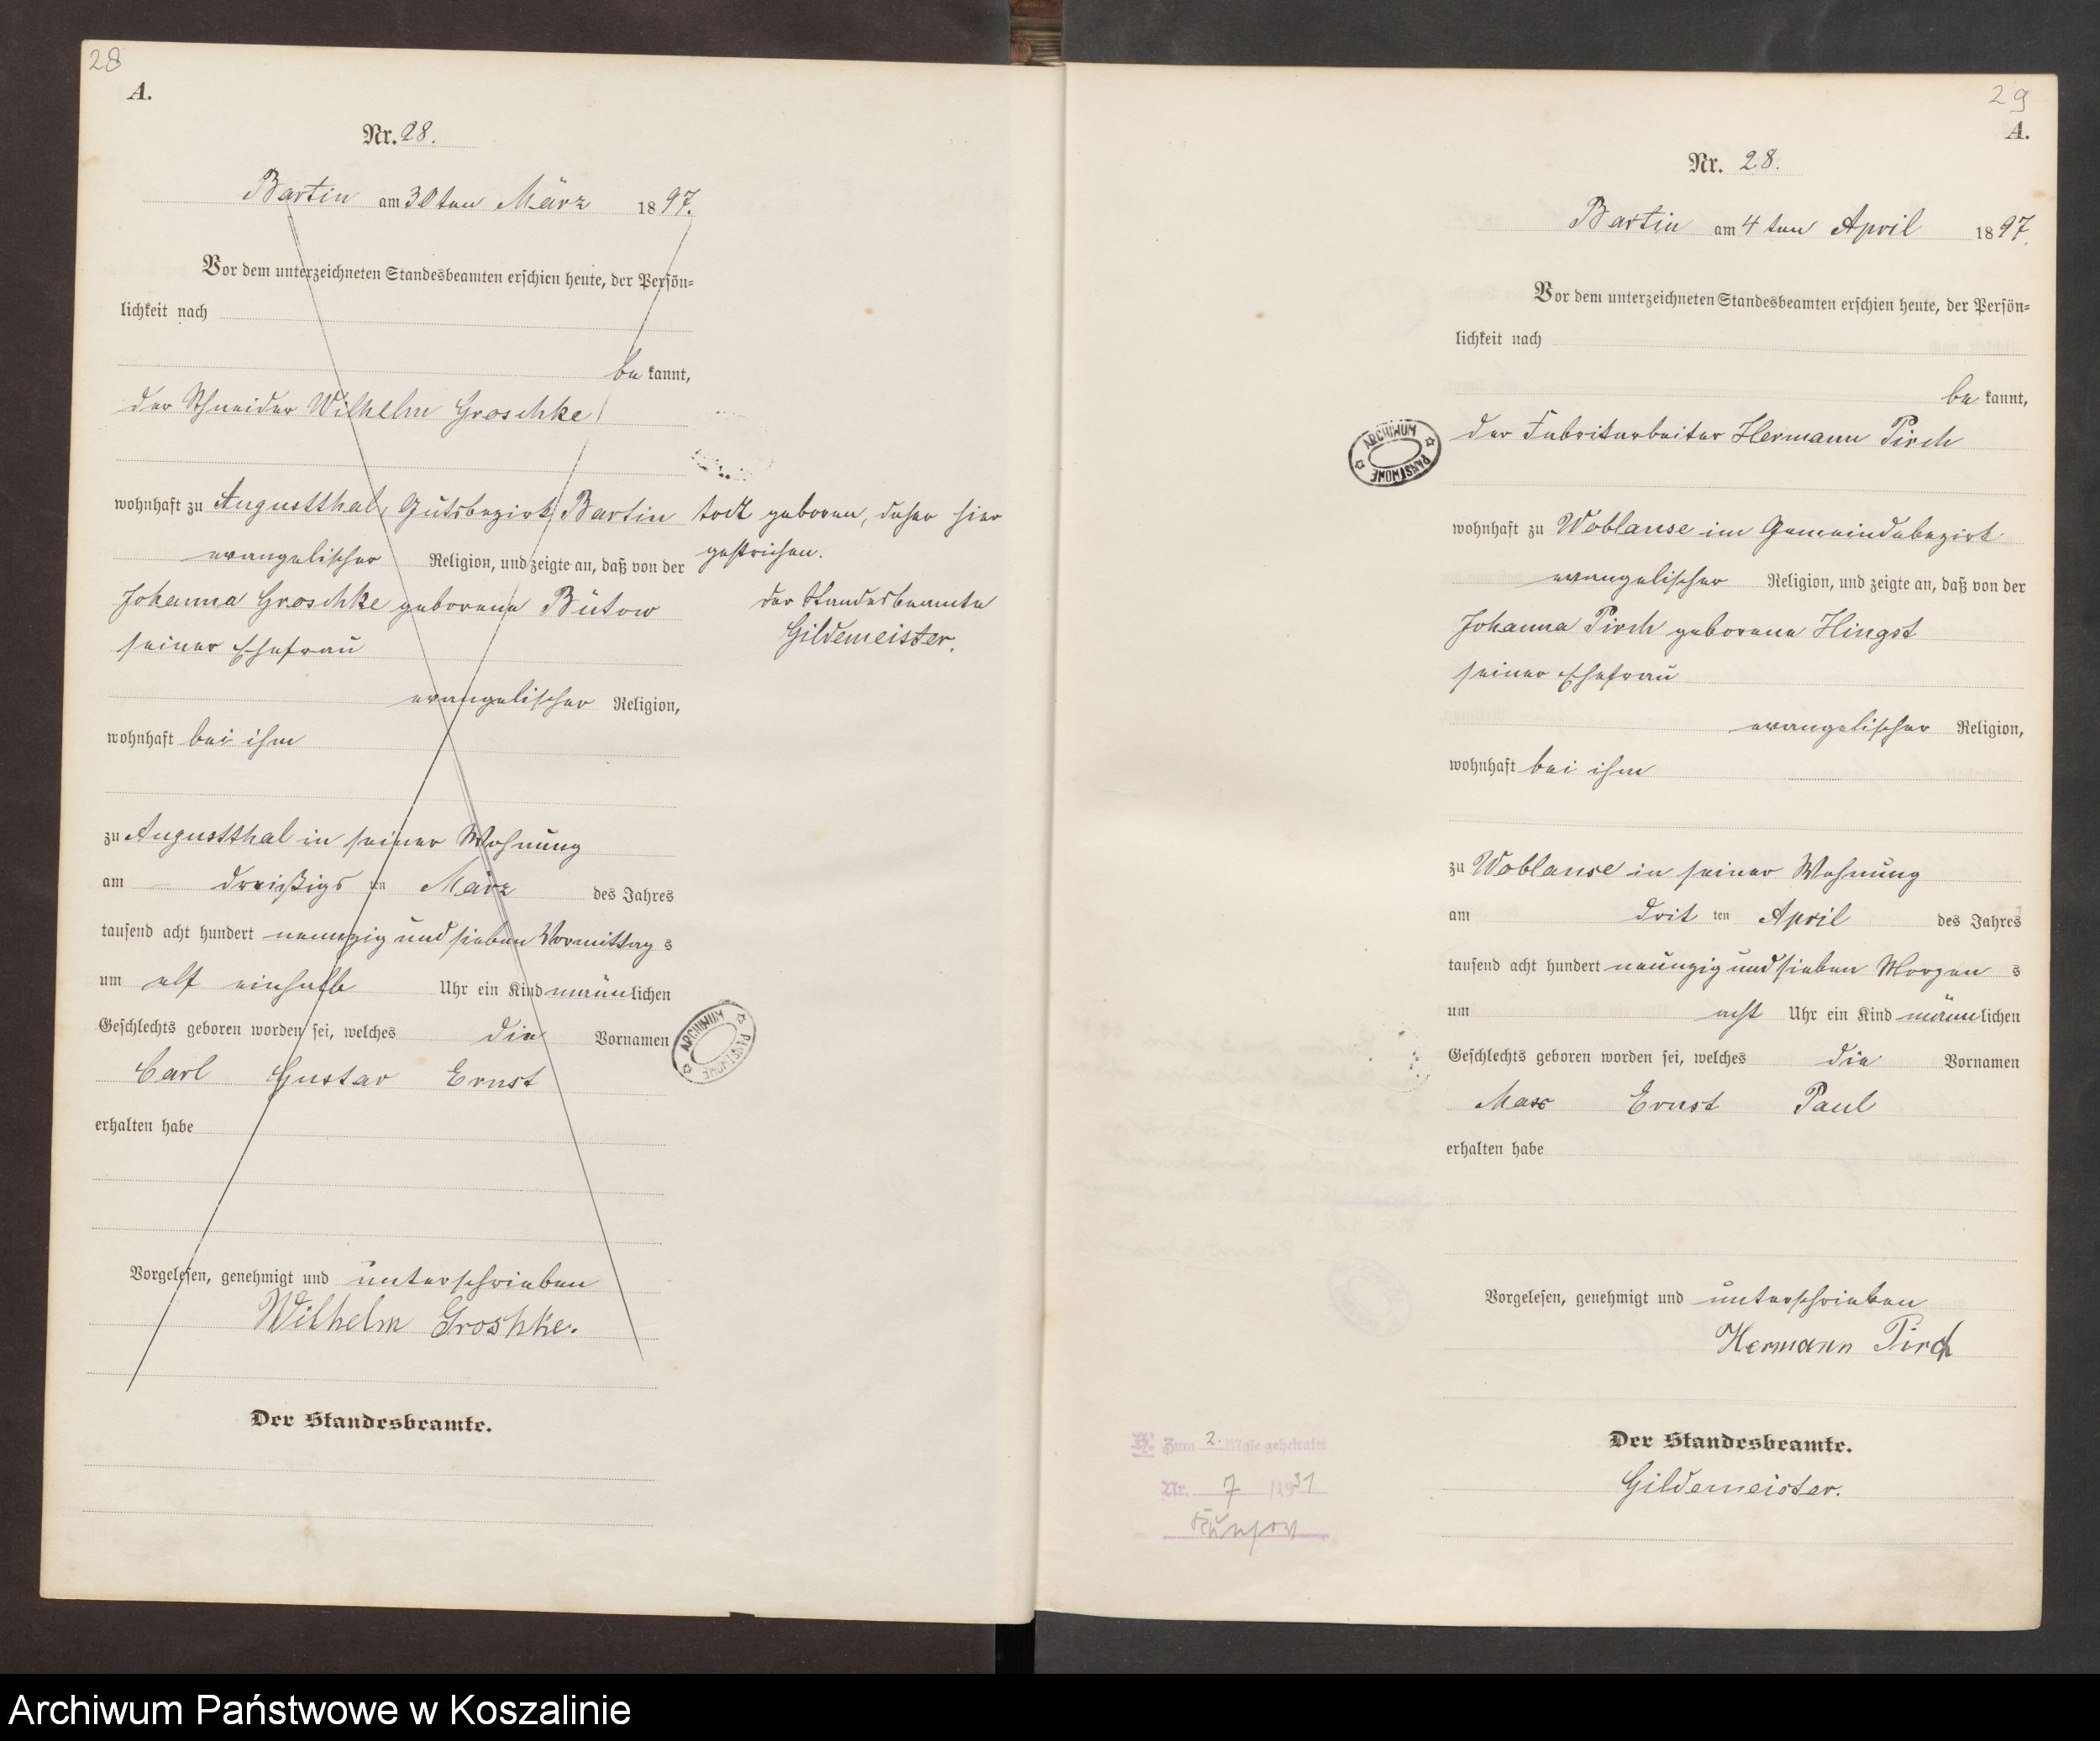 28
A.
Nr. 28.
Bartin am 30ten März 1897.
Vor dem unterzeichneten Standesbeamten erschien heute, der Persön-
lichkeit nach
bekannt,
der Schneider Wilhelm Groschke
wohnhaft zu Augustthal, Gutsbezirk Bartin
evangelischer Religion, und zeigte an, daß von der
Johanna Groschke geborene Bütow
seiner Ehefrau
evangelischer Religion,
wohnhaft bei ihm
zu Augustthal in seiner Wohnung
am dreißigsten März des Jahres
tausend acht hundert neunzig und sieben Vormittags
um elf einhalb Uhr ein Kind männlichen
Geschlechts geboren worden sei, welches die Vornamen
Carl Gustav Ernst
erhalten habe
Vorgelesen, genehmigt und unterschrieben
Wilhelm Groschke.
Der Standesbeamte.
todt geboren, daher hier
gestrichen.
der Standesbeamte
Gildemeister.
ARCHIWUM PAŃSTWOWE
29
A.
Nr. 28.
Bartin am 4ten April 1897.
Vor dem unterzeichneten Standesbeamten erschien heute, der Persön-
lichkeit nach
bekannt,
der Fabrikarbeiter Hermann Pirch
wohnhaft zu Woblanse im Gemeindebezirk
evangelischer Religion, und zeigte an, daß von der
Johanna Pirch geborene Hingst
seiner Ehefrau
evangelischer Religion,
wohnhaft bei ihm
zu Woblanse in seiner Wohnung
am dritten April des Jahres
tausend acht hundert neunzig und sieben Morgens
um acht Uhr ein Kind männlichen
Geschlechts geboren worden sei, welches die Vornamen
Max Ernst Paul
erhalten habe
Vorgelesen, genehmigt und unterschrieben
Hermann Pirch
Der Standesbeamte.
Gildemeister.
ARCHIWUM PAŃSTWOWE
Zum 2. Male geheiratet
Nr. 7 /1931
Archiwum Państwowe w Koszalinie